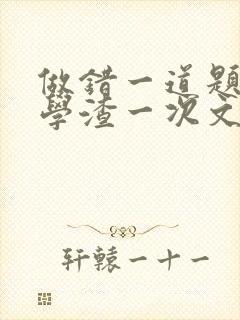 做錯一道題
學渣一次文
軒轅一十一